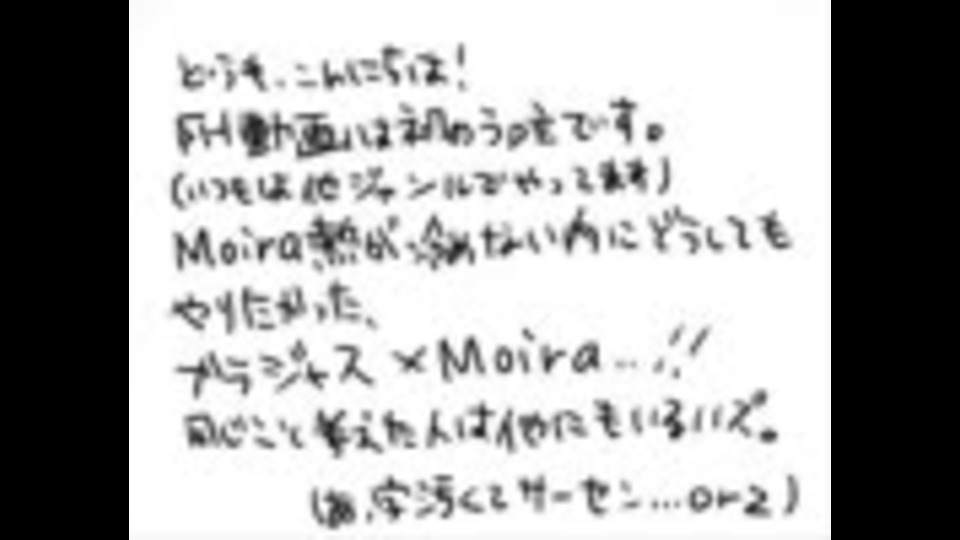 どうも、こんにちは!
FH動画は初めうp主です。
(いつもは他ジャンルでやってます)
Moira熱が冷めない内にどうしても
やりたかった、
ブラジャス×Moira…!!
同じこと考えた人は他にもいるハズ。
(あ、字汚くてサーセン…orz)